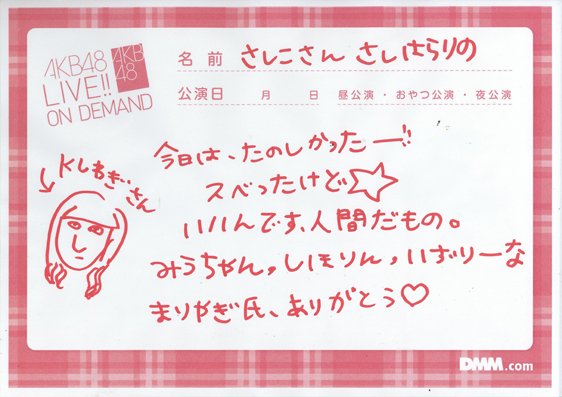 AKB48
LIVE!!
ON DEMAND
AKB
48
名前 さしこさん さしはらりの
公演日 月 日 昼公演・おやつ公演・夜公演
今日は、たのしかったー!!
スベったけど☆
いいんです、人間だもの。
みうちゃん,しほりん,いずりーな
まりやぎ氏、ありがとう♡
Kしわぎさん
DMM.com